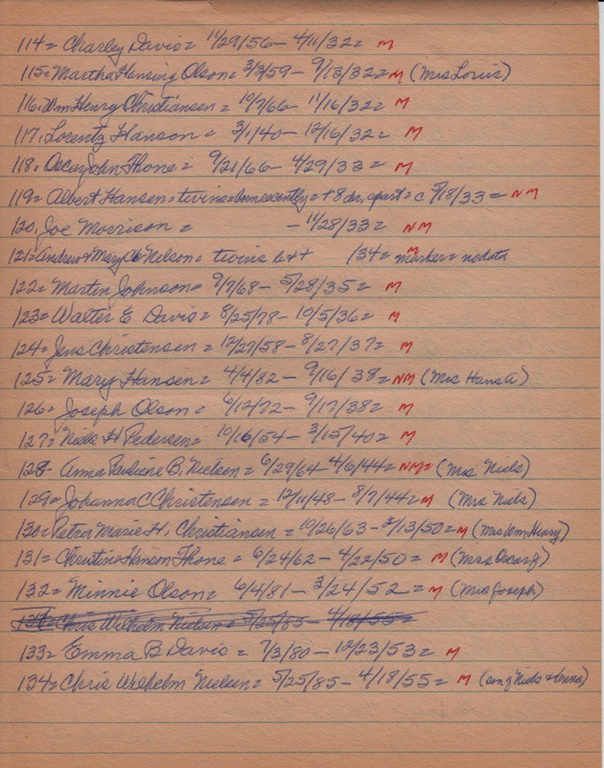 114= Charley Davis= 11/29/56 – 4/11/32= M
115= Martha Hansing Olson= 3/3/59 – 9/13/32= M (Mrs Louis)
116. Wm Henry Christiansen = 10/7/66 – 11/16/32= M
117. Lorentz Hanson = 3/1/40 – 12/16/32= M
118. Oscar John Thone= 9/21/66 – 4/29/33= M
119= Albert Hansen= twins= + 8 da, apart= c 5/18/33= NM
120, Joe Morrison = – 11/28/33= NM
121= Andrew & Mary Nelson= twins b&+ 134= M marker= no data
122= Martin Johnson= 9/7/68 – 5/28/35= M
123= Walter E Davis= 8/25/78 – 10/5/36= M
124= Jens Christensen = 12/27/58 – 8/27/37= M
125= Mary Hansen= 4/4/82 – 9/16/38= NM (Mrs Hans A)
126= Joseph Olson= 6/12/72 – 9/17/38= M
127= Niels H Pedersen= 10/16/54 – 3/15/40= M
128- Anna Pauliene B, Nielsen = 6/29/64 – 4/6/44= NM= (Mrs Niels)
129= Johanna C Christensen = 12/11/48 – 8/7/44= M (Mrs Niels)
130= Petra Marie H, Christiansen = 10/26/63 – 2/13/50= M (Mrs Wm Henry)
131= Christine Hanson Thone= 6/24/62 – 4/22/50= M (Mrs Oscar J)
132= Minnie Olson= 6/4/81 – 3/24/52= M (Mrs Joseph)
Chris Wilhelm Nielsen= 5/25/85 – 4/18/55=
133= Emma B Davis = 7/3/80 – 12/23/53= M
134= Chris Wilhelm Nielsen= 5/25/85 – 4/18/55= M (son of Niels & Anna)